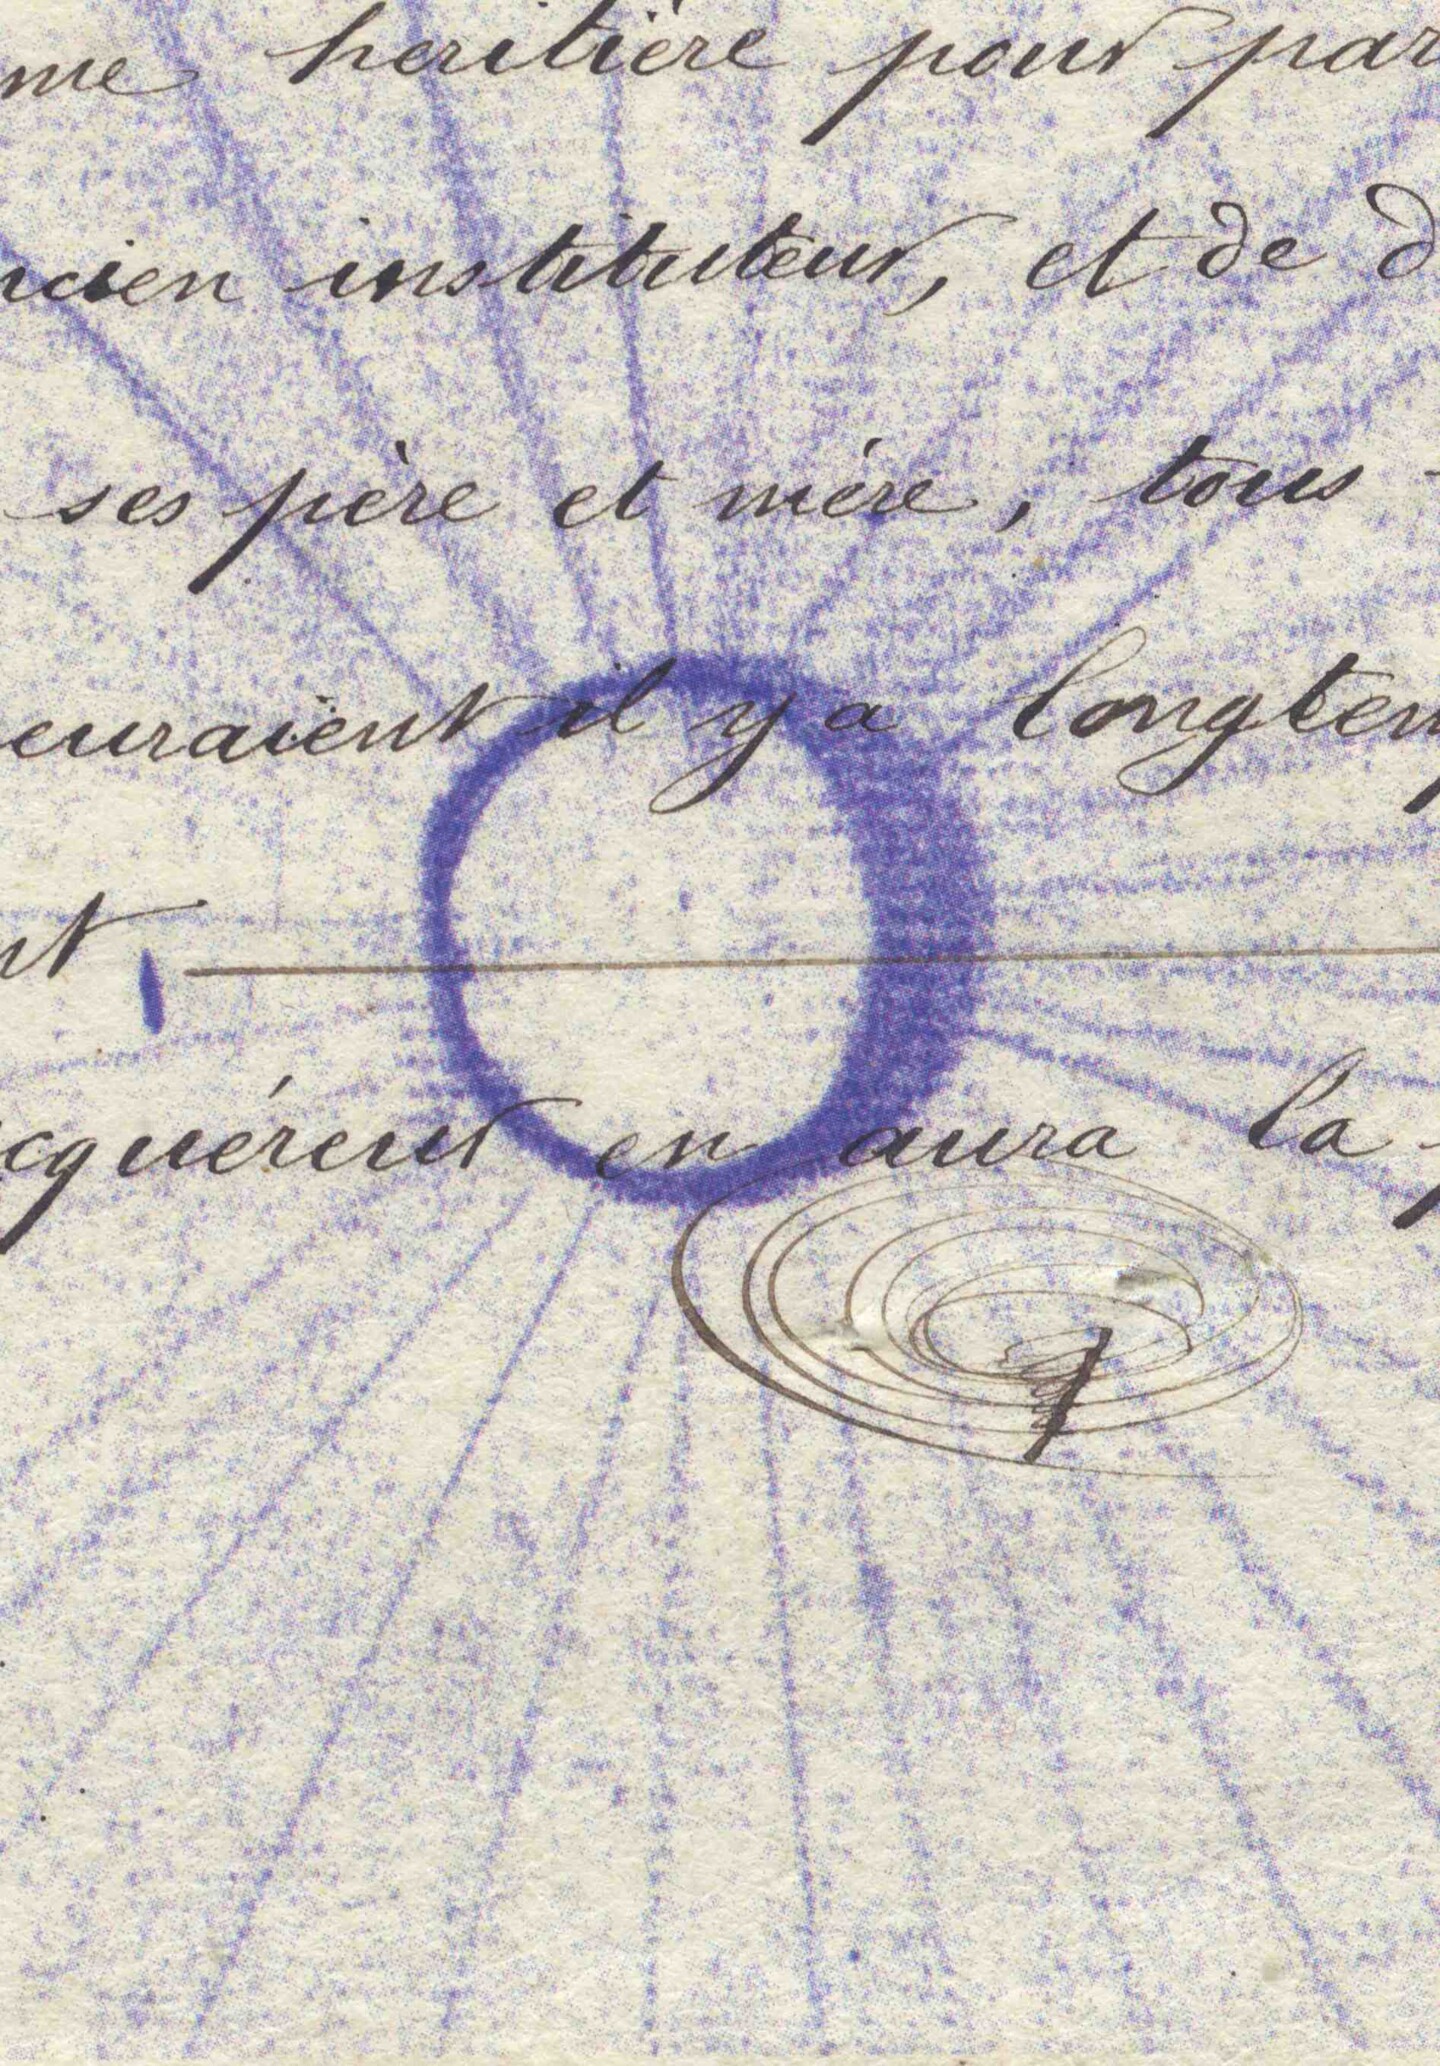 me heritière pour par
ncien instituteur, et de d
ses père et mère, tous
euraient il y a longtem
nt
cquéreur en aura la